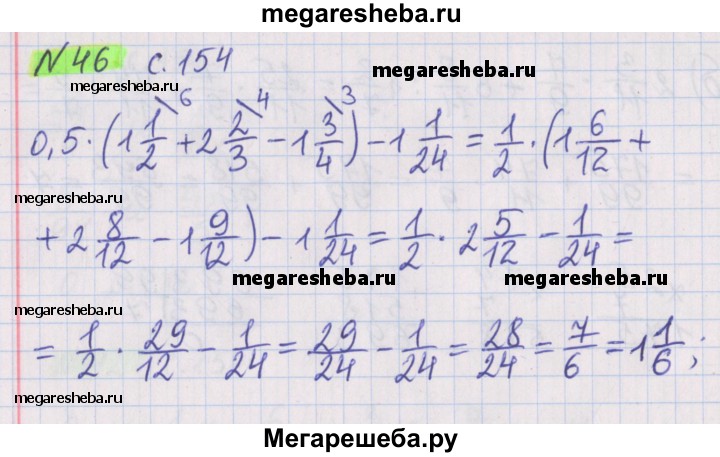 megaresheba.ru
N 46 с. 154
megaresheba.ru
megaresheba.ru
6 4 3
0,5·(1 1/2 + 2 2/3 - 1 3/4) - 1 1/24 = 1/2·(1 6/12 +
megaresheba.ru
+ 2 8/12 - 1 9/12) - 1 1/24 = 1/2 · 2 5/12 - 1/24 =
megaresheba.ru megaresheba.ru
megaresheba.ru
= 1/2 · 29/12 - 1/24 = 29/24 - 1/24 = 28/24 = 7/6 = 1 1/6;
megaresheba.ru megaresheba.ru
Мегарешеба.ру